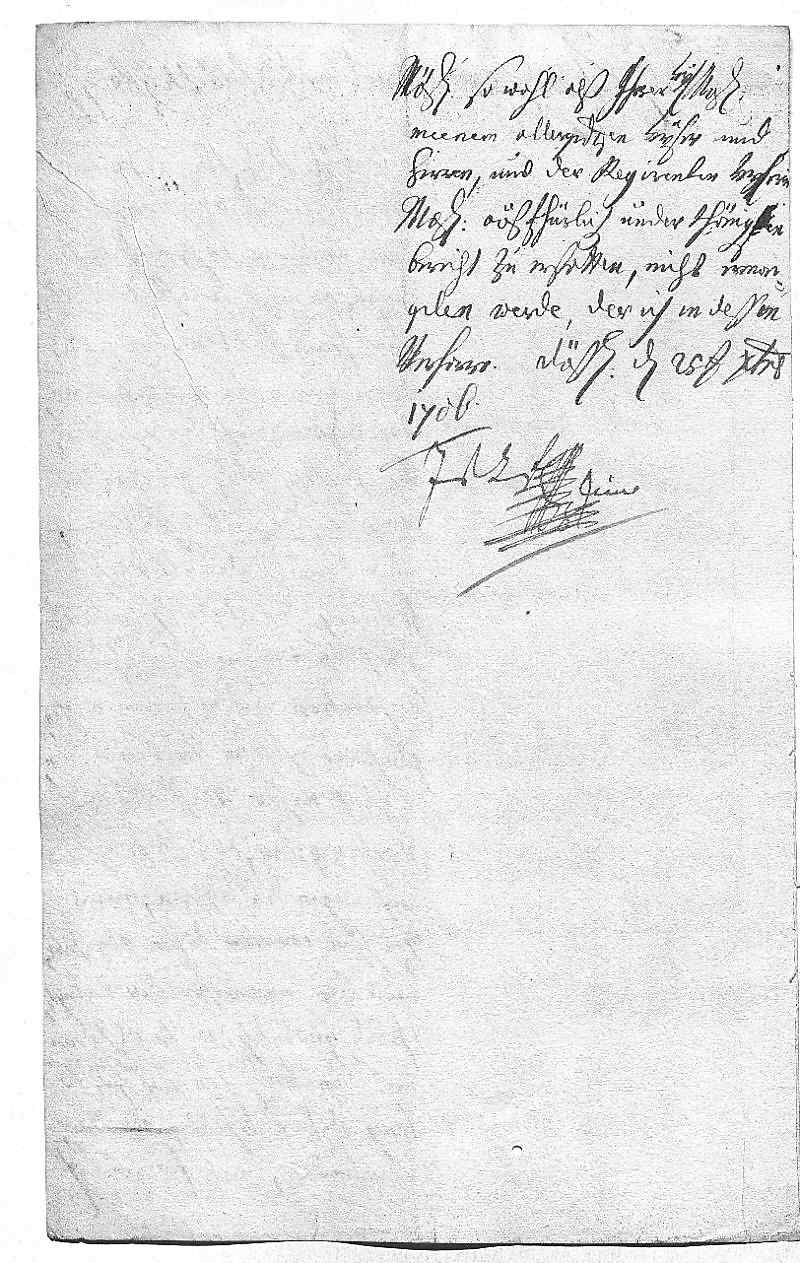 Mayst: so wohl alß Ihrer kay: Mayst:
meinem allergdsten kayßer und
Herren, und der Regirenden kayserin
Mayst: außführlich under thänigsten
bericht zu erstatten, nicht erman-
glen werde, der ich in dessen
Verharre. d 25t xbris
1706.